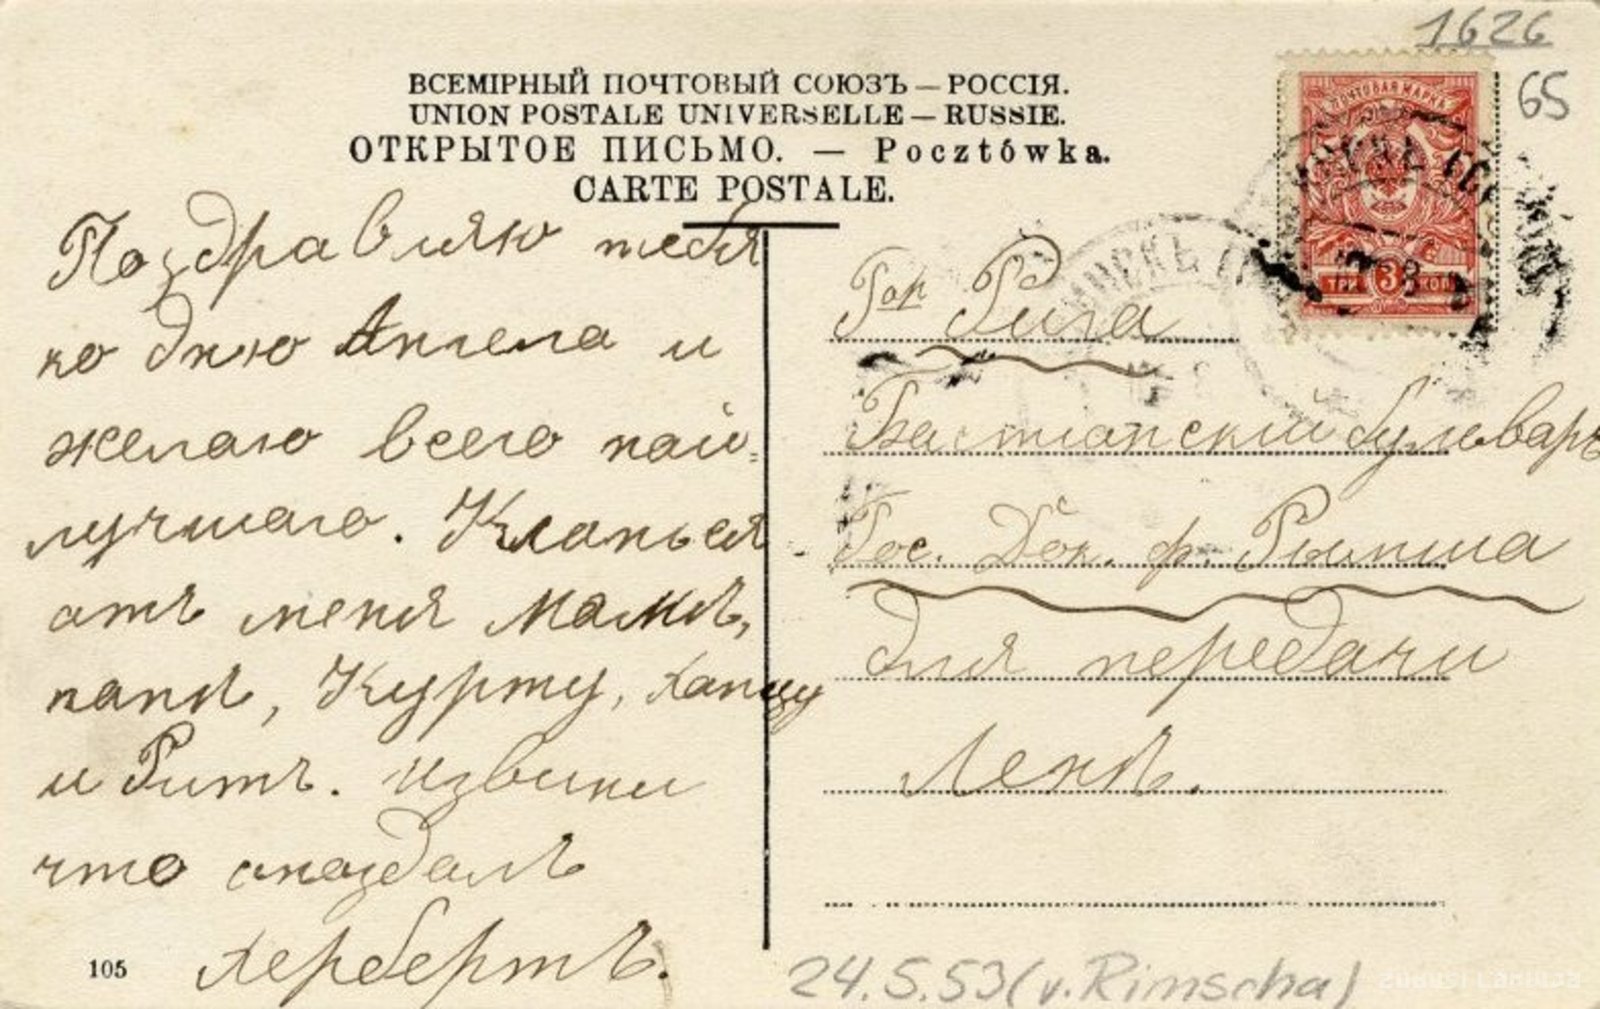 1626
65
ВСЕМІРНЫЙ ПОЧТОВЫЙ СОЮЗЪ — РОССІЯ.
UNION POSTALE UNIVERSELLE — RUSSIE.
ОТКРЫТОЕ ПИСЬМО. — Pocztówka.
CARTE POSTALE.
ПОЧТОВАЯ МАРКА
ТРИ 3 КОП
Поздравляю тебя
ко дню Ангела и
желаю всего най=
лучшаго. Кланься
отъ меня мамѣ,
папѣ, Курту, Ханцу
и Ритъ. извини
что опоздалъ
Хербертъ.
105
Гор Рига
Бастіонский бульваръ
Гос. Док. ф. Римша
для передачи
Ленѣ.
24.5.53 (v. Rimscha)